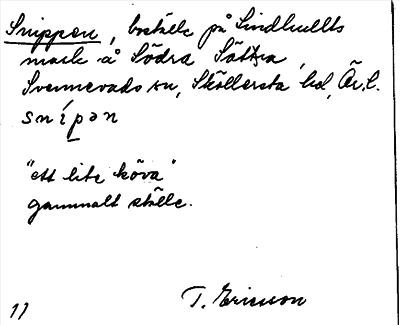 Snippen, boställe på Lindhults
mark å Södra Sättra,
Svennevads sn, Sköllersta hd, Ör. l.
snípən
"ett lite köva"
gammalt ställe.
T. Ericsson
17